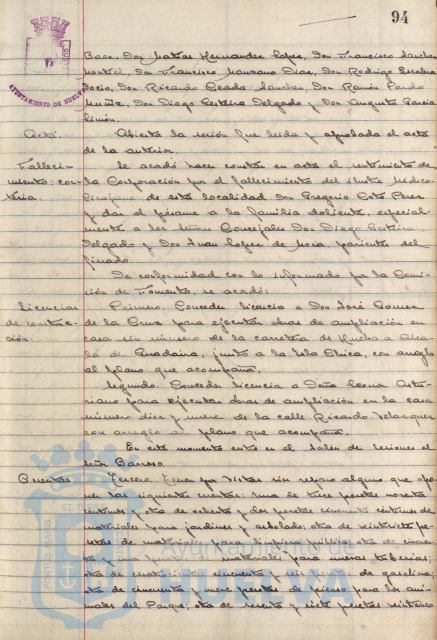 94
AYUNTAMIENTO DE HUELVA
Baco, Don Matías Hernández López, Don Francisco Sánchez
Montiel, Don Francisco Manzano Díaz, Don Rodrigo
Socio, Don Ricardo Sánchez, Don Ramón Pardo
Muñiz, Don Diego Delgado y Don Augusto García
Limón.
Acta. Abierta la sesión fue leída y aprobada el acta
de la anterior.
Falleci-
miento: Se acordó hacer constar en acta el sentimiento de
la Corporación por el fallecimiento del ilustre Médico-
Cirujano de esta localidad Don Gregorio Soto Pérez
y dar el pésame a la familia doliente, especial-
mente a los señores Concejales Don Diego
Delgado y Don Juan López de Mora, parientes del
finado.
De conformidad con lo informado por la Comi-
sión de Fomento, se acordó:
Licencias
de construc-
ción.
Primero. Conceder licencia a Don José Gómez
de la Cruz para ejecutar obras de ampliación en
casa sin número de la carretera de Huelva a Alca-
lá de Guadaira, junto a la Isla Chica, con arreglo
al plano que acompaña.
Segundo. Conceder licencia a Doña Leonor Astu-
riano para ejecutar obras de ampliación en la casa
número diez y nueve de la calle Ricardo Velázquez
con arreglo al plano que acompaña.
En este momento entra en el salón de sesiones el
señor Barroso.
Cuentas Tercero. Tener por vistas sin reparo alguno que opo-
ner las siguientes cuentas: una de trece pesetas noventa
céntimos y otra de ochenta y dos pesetas cincuenta céntimos de
materiales para jardines y arbolado; otra de veintisiete pe-
setas de materiales para limpieza pública; otra de cincuen-
ta y una materiales para nuevas tuberías;
otra de cincuenta y de gasolina;
otra de cincuenta y nueve pesetas de pienso para los ani-
males del Parque; otra de sesenta y siete pesetas veinticinco
Ayuntamiento de
HUELVA